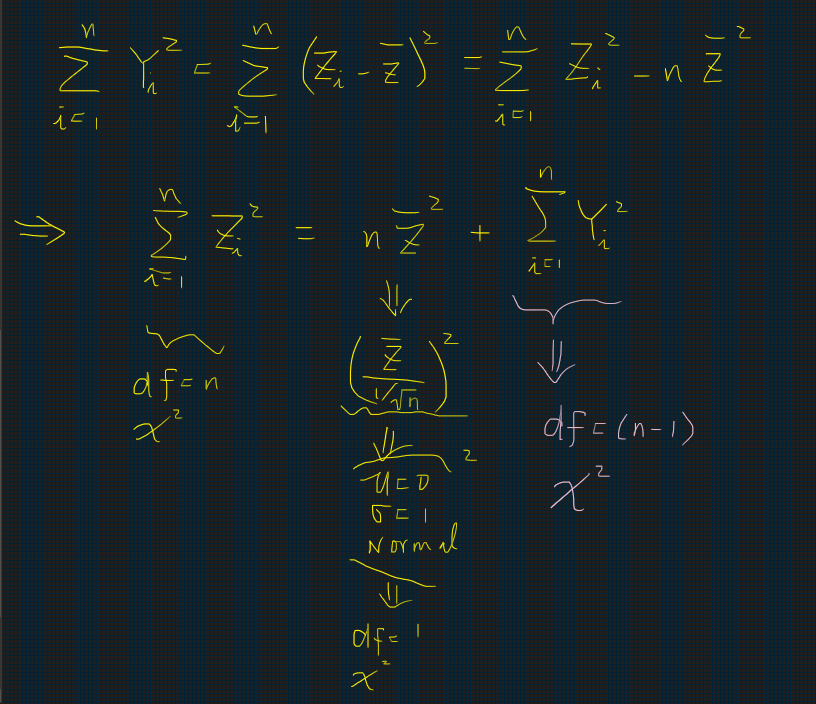 ∑_{i=1}^{n} Y_i² = ∑_{i=1}^{n} (Z_i - Z̄)² = ∑_{i=1}^{n} Z_i² - n Z̄²
⇒ ∑_{i=1}^{n} Z_i² = n Z̄² + ∑_{i=1}^{n} Y_i²
⇓
df = n
χ²
(Z̄ / (1/√n))²
⇓
μ = 0 ²
σ = 1
Normal
⇓
df = 1
χ²
⇓
df = (n-1)
χ²